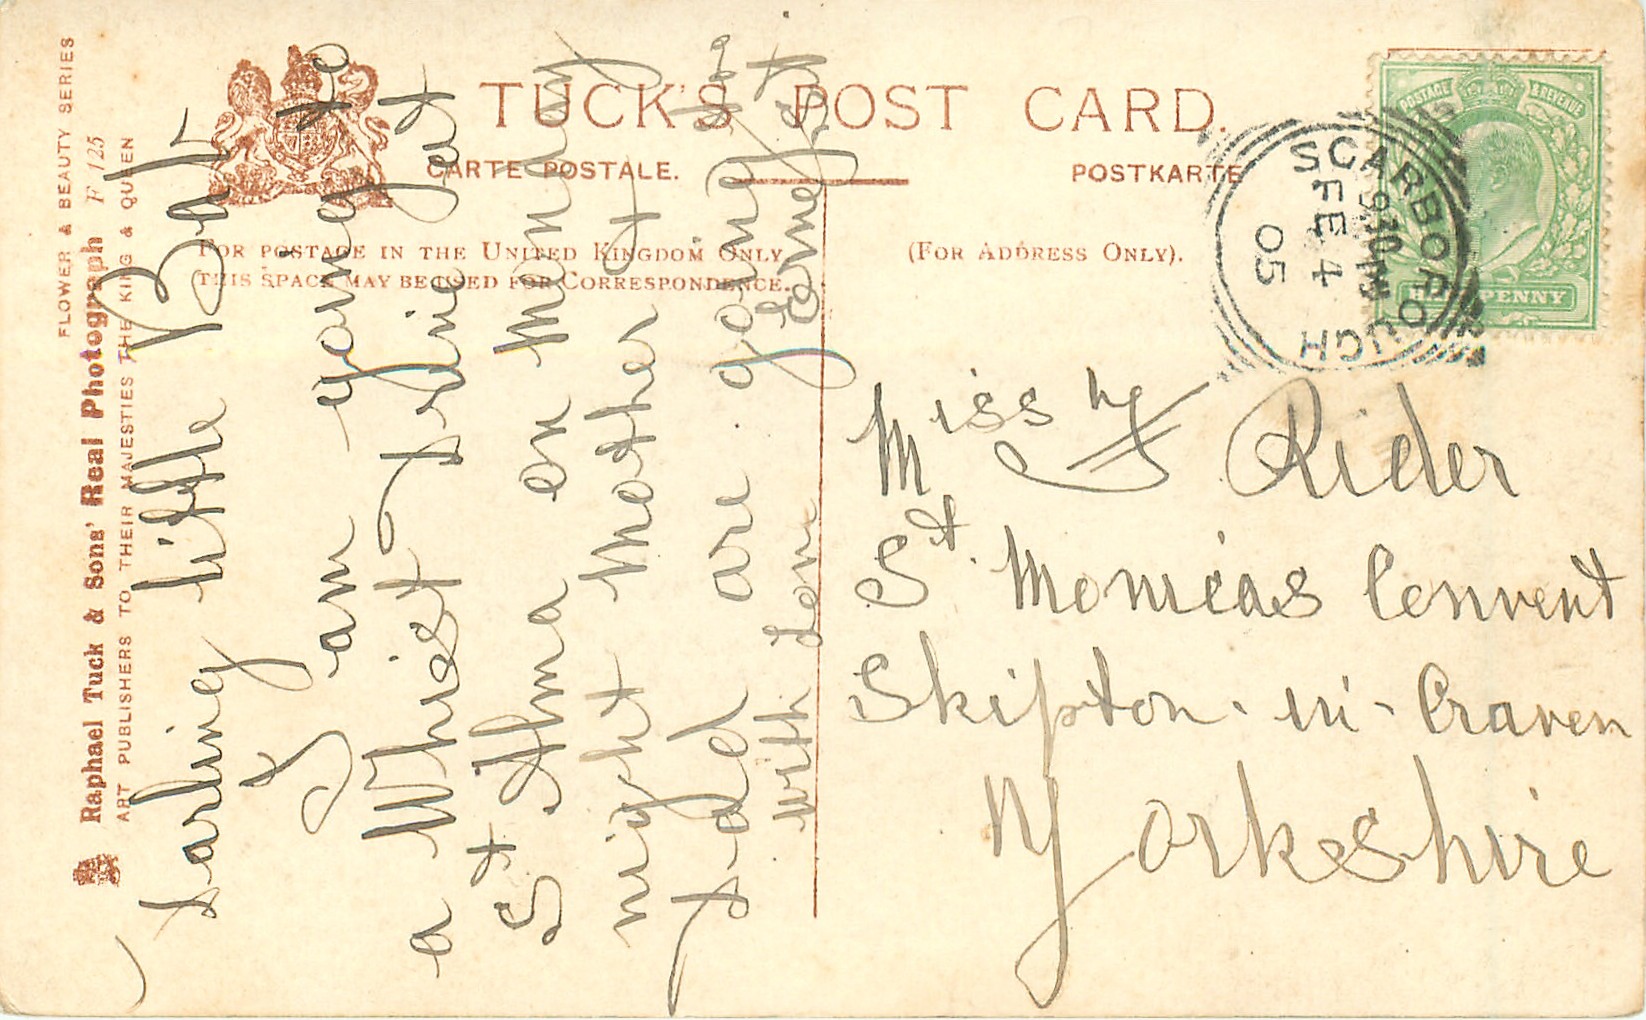 FLOWER & BEAUTY SERIES
F 125
Raphael Tuck & Sons' Real Photograph
ART PUBLISHERS TO THEIR MAJESTIES THE KING & QUEEN
TUCK'S POST CARD.
CARTE POSTALE.
POSTKARTE
FOR POSTAGE IN THE UNITED KINGDOM ONLY,
THIS SPACE MAY BE USED FOR CORRESPONDENCE.
(FOR ADDRESS ONLY).
POSTAGE & REVENUE
HALFPENNY
SCARBOROUGH
9.30
FE 4
05
Darling little Bab
I am going to
a Whist Drive at
St Alma on Monday
night Mother &
Dad are going to
with Len
Miss Rider
St. Monicas Convent
Skipton-in-Craven
Yorkshire